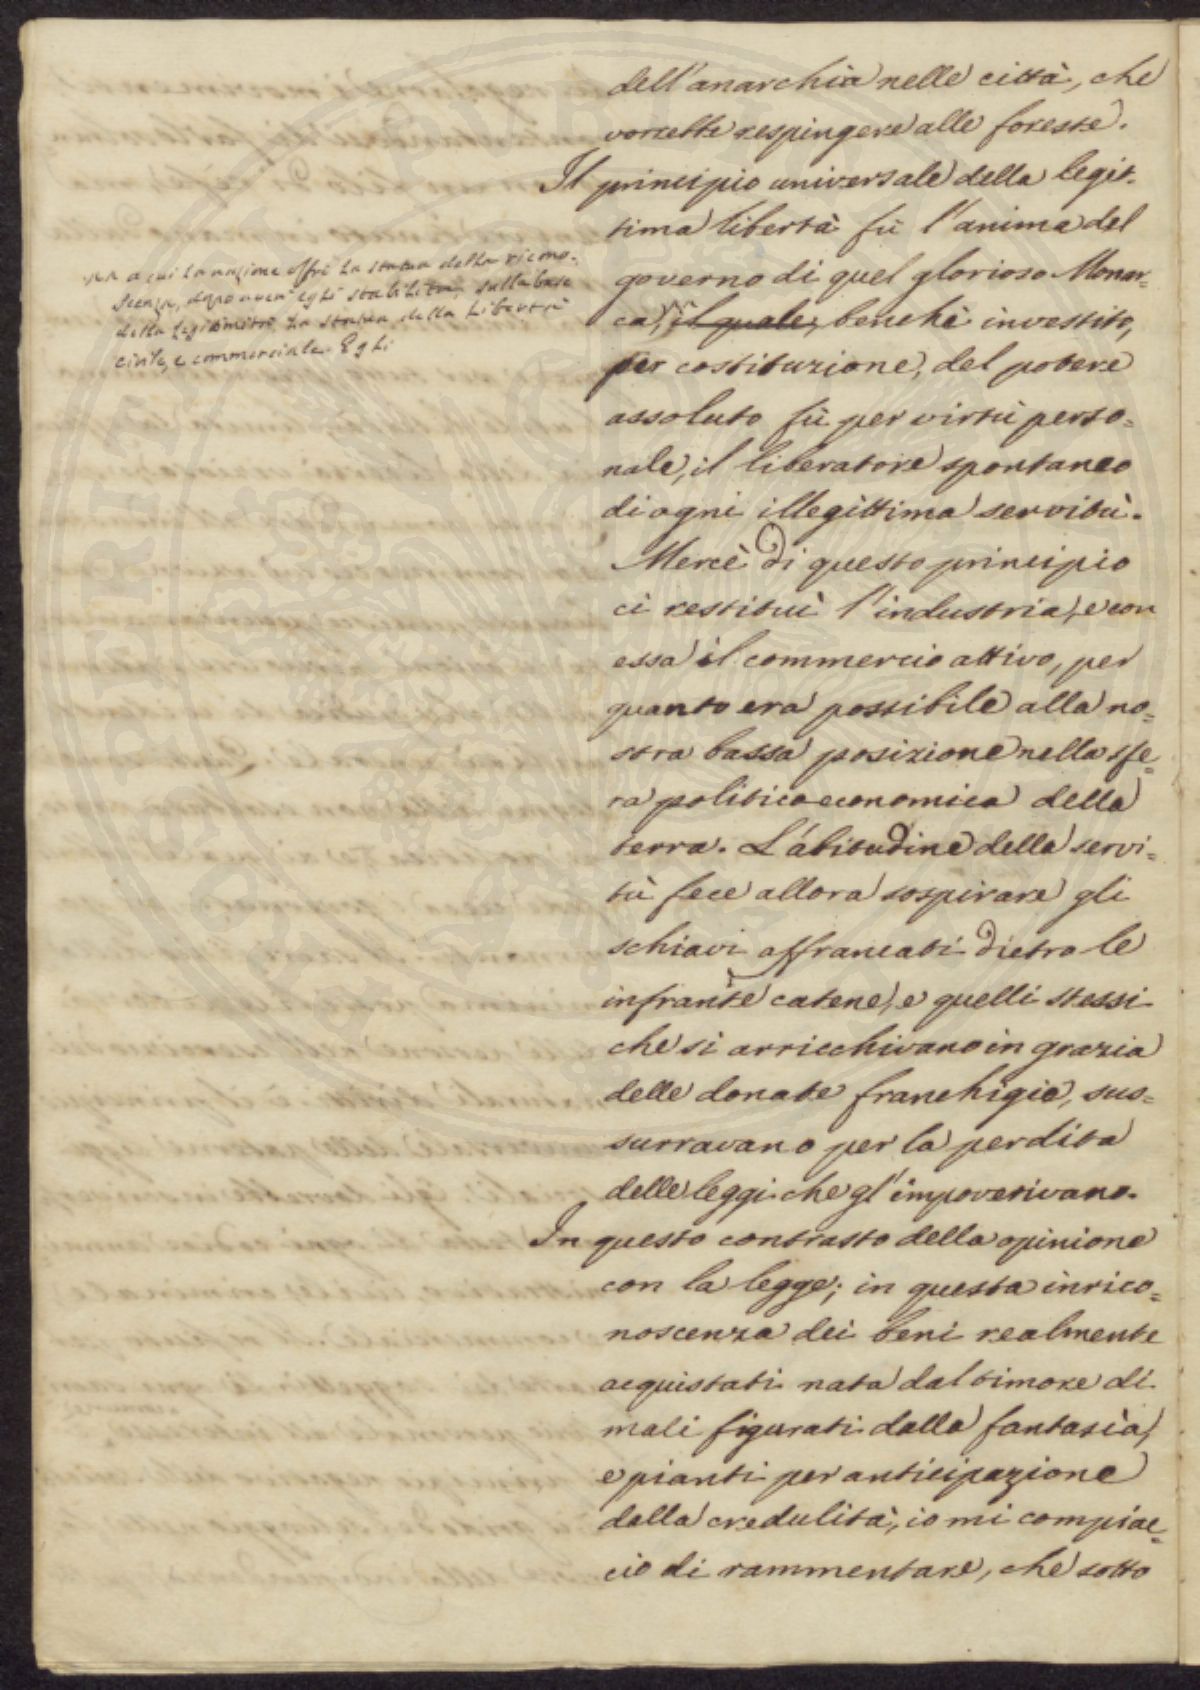 dell'anarchìa nelle città, che
vorrebbe respingere alle foreste.
Il principio universale della legit-
tima libertà fù l'anima del
governo di quel glorioso Monar-
ca, il quale, benchè investito,
per costituzione, del potere
assoluto fù per virtù perso=
nale, il liberatore spontaneo
di ogni illegittima servitù.
Mercè di questo principio
ci restituì l'industria, e con
essa il commercio attivo, per
quanto era possibile alla no=
stra bassa posizione nella sfe=
ra politico economica della
terra. L'abitudine della servi=
tù fece allora sospirare gli
schiavi affrancati dietro le
infrante catene, e quelli stessi
che si arricchivano in grazia
delle donate franchigie, sus=
surravano per la perdita
delle leggi che gl'impoverivano.
In questo contrasto della opinione
con la legge; in questa inrico=
noscenza dei beni realmente
acquistati nata dal timore di
mali figurati dalla fantasìa,
e pianti per anticipazione
dalla credulità, io mi compiac=
cio di rammentare, che sotto
a cui la nazione offrì la statua della ricono-
scenza, dopo aver egli stabilita, sulla base
della legittimità, la statua della Libertà
civile, e commerciale. Egli